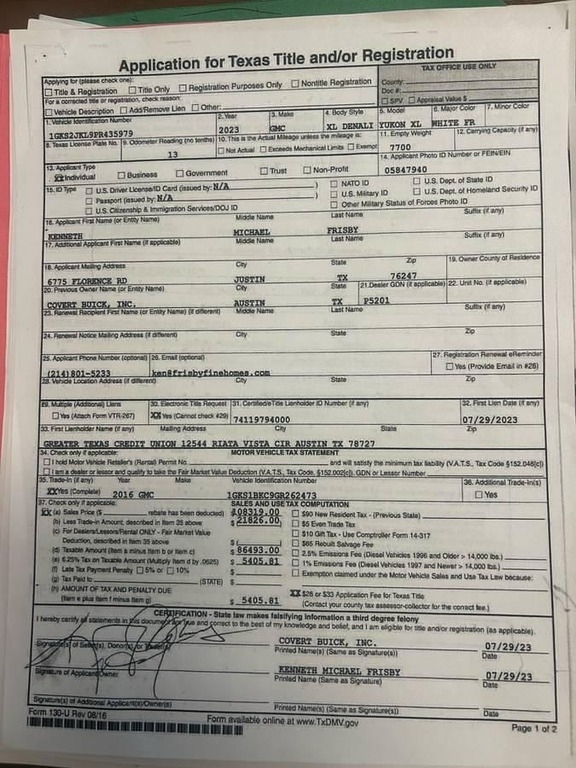 Application for Texas Title and/or Registration
Applying for (please check one): TAX OFFICE USE ONLY
Title & Registration Title Only Registration Purposes Only Nontitle Registration County:
For a corrected title or registration, check reason: Doc #:
Vehicle Description Add/Remove Lien Other: SPV Appraisal Value $
1. Vehicle Identification Number 2. Year 3. Make 4. Body Style 5. Model 6. Major Color 7. Minor Color
1GKS2JKL9PR435979 2023 GMC XL DENALI YUKON XL WHITE FR
8. Texas License Plate No. 9. Odometer Reading (no tenths) 10. This is the Actual Mileage unless the mileage is: 11. Empty Weight 12. Carrying Capacity (if any)
13 Not Actual Exceeds Mechanical Limits Exempt 7700
13. Applicant Type 14. Applicant Photo ID Number or FEIN/EIN
XX Individual Business Government Trust Non-Profit 05847940
15. ID Type U.S. Driver License/ID Card (issued by: N/A ) NATO ID U.S. Dept. of State ID
Passport (issued by: N/A ) U.S. Military ID U.S. Dept. of Homeland Security ID
U.S. Citizenship & Immigration Services/DOJ ID Other Military Status of Forces Photo ID
16. Applicant First Name (or Entity Name) Middle Name Last Name Suffix (if any)
KENNETH MICHAEL FRISBY
17. Additional Applicant First Name (if applicable) Middle Name Last Name Suffix (if any)
18. Applicant Mailing Address City State Zip 19. Owner County of Residence
6775 FLORENCE RD JUSTIN TX 76247
20. Previous Owner Name (or Entity Name) City State 21. Dealer GDN (if applicable) 22. Unit No. (if applicable)
COVERT BUICK, INC. AUSTIN TX P5201
23. Renewal Recipient First Name (or Entity Name) (if different) Middle Name Last Name Suffix (if any)
24. Renewal Notice Mailing Address (if different) City State Zip
25. Applicant Phone Number (optional) 26. Email (optional) 27. Registration Renewal eReminder
(214)801-5233 ken@frisbyfinehomes.com Yes (Provide Email in #26)
28. Vehicle Location Address (if different) City State Zip
29. Multiple (Additional) Liens 30. Electronic Title Request 31. Certified/eTitle Lienholder ID Number (if any) 32. First Lien Date (if any)
Yes (Attach Form VTR-267) XX Yes (Cannot check #29) 74119794000 07/29/2023
33. First Lienholder Name (if any) Mailing Address City State Zip
GREATER TEXAS CREDIT UNION 12544 RIATA VISTA CIR AUSTIN TX 78727
34. Check only if applicable: MOTOR VEHICLE TAX STATEMENT
I hold Motor Vehicle Retailer's (Rental) Permit No. and will satisfy the minimum tax liability (V.A.T.S., Tax Code §152.046[c])
I am a dealer or lessor and qualify to take the Fair Market Value Deduction (V.A.T.S., Tax Code, §152.002[c]). GDN or Lessor Number
35. Trade-In (if any) Year Make Vehicle Identification Number 36. Additional Trade-In(s)
XX Yes (Complete) 2016 GMC 1GKS1BKC9GR262473 Yes
37. Check only if applicable: SALES AND USE TAX COMPUTATION
XX (a) Sales Price ($ rebate has been deducted) 108319.00 $90 New Resident Tax - (Previous State)
(b) Less Trade-In Amount, described in Item 35 above $ 21826.00 $5 Even Trade Tax
(c) For Dealers/Lessors/Rental ONLY - Fair Market Value $10 Gift Tax - Use Comptroller Form 14-317
Deduction, described in Item 35 above $( ) $65 Rebuilt Salvage Fee
(d) Taxable Amount (Item a minus Item b or Item c) $ 86493.00 2.5% Emissions Fee (Diesel Vehicles 1996 and Older > 14,000 lbs.)
(e) 6.25% Tax on Taxable Amount (Multiply Item d by .0625) $ 5405.81 1% Emissions Fee (Diesel Vehicles 1997 and Newer > 14,000 lbs.)
(f) Late Tax Payment Penalty 5% or 10% $ Exemption claimed under the Motor Vehicle Sales and Use Tax Law because:
(g) Tax Paid to (STATE) $
(h) AMOUNT OF TAX AND PENALTY DUE XX $28 or $33 Application Fee for Texas Title
(Item e plus Item f minus Item g) $ 5405.81 (Contact your county tax assessor-collector for the correct fee.)
CERTIFICATION - State law makes falsifying information a third degree felony
I hereby certify all statements in this document are true and correct to the best of my knowledge and belief, and I am eligible for title and/or registration (as applicable).
COVERT BUICK, INC. 07/29/23
Signature(s) of Seller(s), Donor(s), or Trader(s) Printed Name(s) (Same as Signature(s)) Date
KENNETH MICHAEL FRISBY 07/29/23
Signature of Applicant/Owner Printed Name (Same as Signature) Date
Signature(s) of Additional Applicant(s)/Owner(s) Printed Name(s) (Same as Signature(s)) Date
Form 130-U Rev 08/16 Form available online at www.TxDMV.gov Page 1 of 2